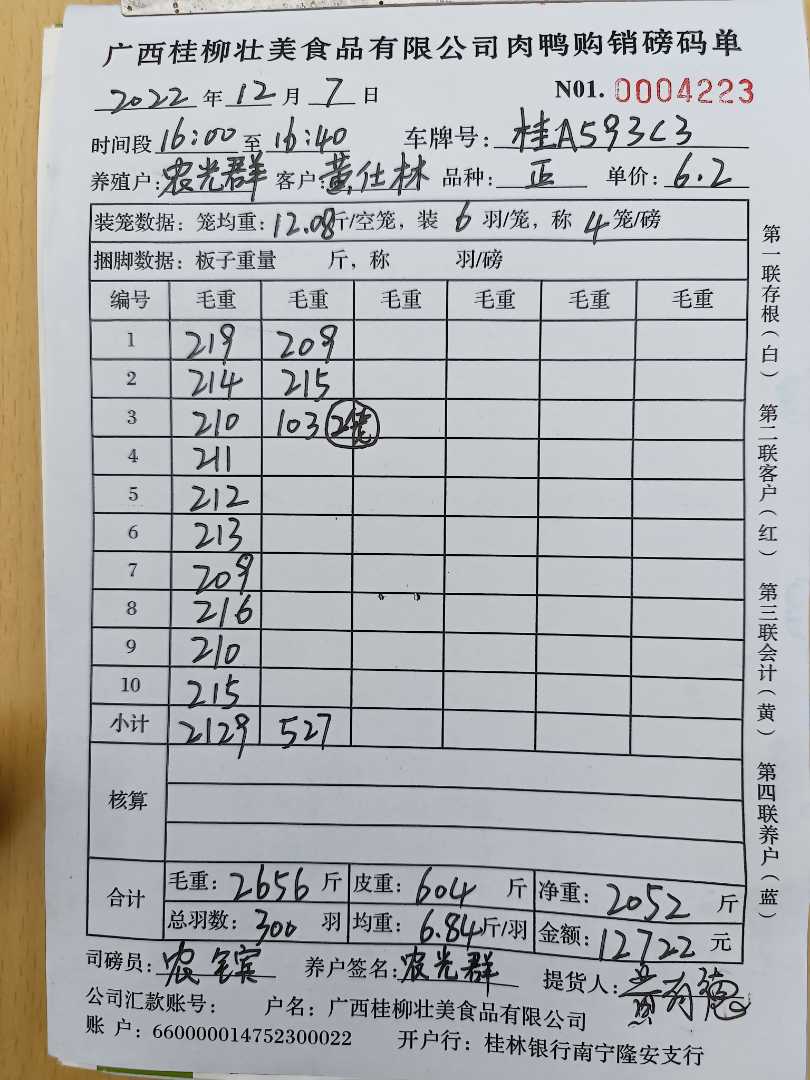 广西桂柳壮美食品有限公司肉鸭购销磅码单
2022 年 12 月 7 日 N01. 0004223
时间段 16:00 至 16:40 车牌号: 桂A593C3
养殖户: 农光群 客户: 黄仕林 品种: 正 单价: 6.2
装笼数据: 笼均重: 12.08 斤/空笼, 装 6 羽/笼, 称 4 笼/磅
捆脚数据: 板子重量 斤, 称 羽/磅
编号 毛重 毛重 毛重 毛重 毛重 毛重
1 219 209
2 214 215
3 210 103 2笼
4 211
5 212
6 213
7 209
8 216
9 210
10 215
小计 2129 527
核算
合计 毛重: 2656 斤 皮重: 604 斤 净重: 2052 斤
总羽数: 300 羽 均重: 6.84 斤/羽 金额: 12722 元
司磅员: 农 养户签名: 农光群 提货人:
公司汇款账号: 户名: 广西桂柳壮美食品有限公司
账 户: 660000014752300022 开户行: 桂林银行南宁隆安支行
第一联存根(白) 第二联客户(红) 第三联会计(黄) 第四联养户(蓝)